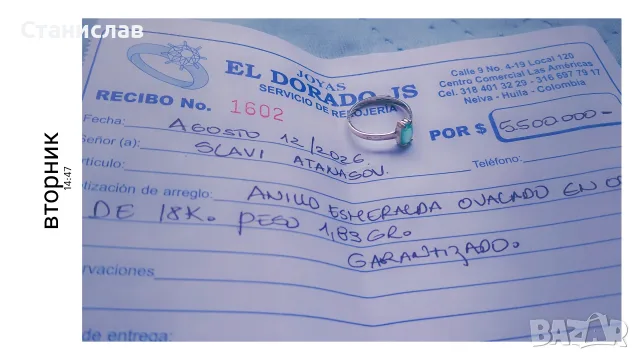 Станислав
вторник
14:47
JOYAS
EL DORADO JS
SERVICIO DE RELOJERIA
Calle 9 No. 4-19 Local 120
Centro Comercial Las Américas
Cel. 318 401 32 29 - 316 597 79 17
Neiva - Huila - Colombia
RECIBO No. 1602
POR $ 5.500.000-
Fecha: AGOSTO 12/2026.
Señor (a): SLAVI ATANASOV.
Teléfono:
artículo:
tización de arreglo: ANILLO ESMERALDA OVALADO EN
DE 18K. PESO 1,83 GR.
GARANTIZADO.
rvaciones
de entrega:
BAZAR
bg